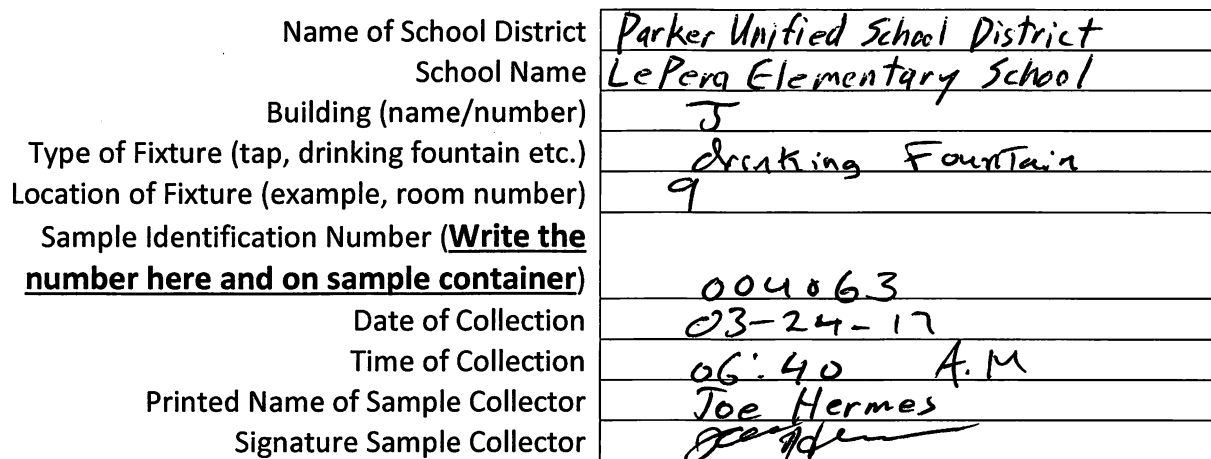 Name of School District Parker Unified School District
School Name LePera Elementary School
Building (name/number) J
Type of Fixture (tap, drinking fountain etc.) drinking Fountain
Location of Fixture (example, room number) 9
Sample Identification Number (Write the
number here and on sample container) 004063
Date of Collection 03-24-17
Time of Collection 06:40 A.M
Printed Name of Sample Collector Joe Hermes
Signature Sample Collector